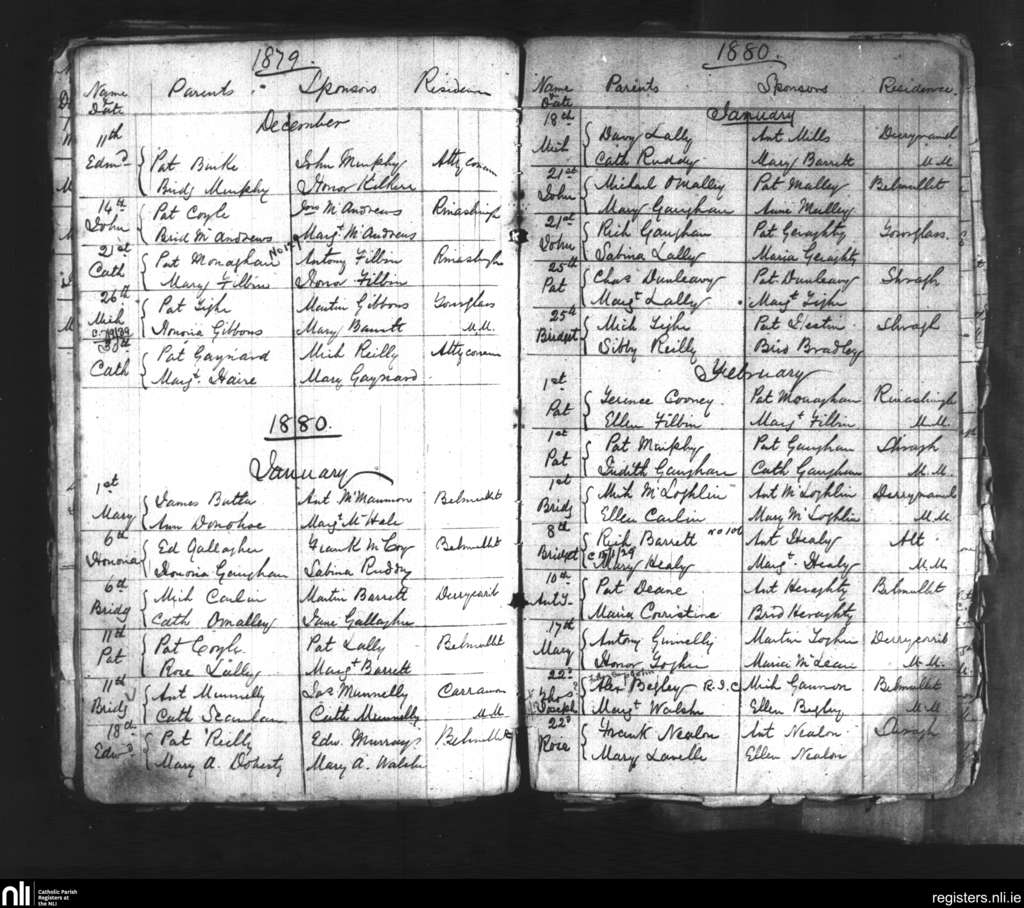 1879.
Name & Date Parents Sponsors Residence
December
11th
Edmd Pat Burke John Murphy Attyconn
Bridg Murphy Honor Kilker
14th
John Pat Coyle Jno McAndrews Rinashingh
Brid McAndrews Margt McAndrews
21st
Cath Pat Monaghan Antony Filbin Rinashingh
Mary Filbin Honor Filbin
26th
Mich Pat Tighe Martin Gibbons Gowrglass
Honoria Gibbons Mary Barrett M.M.
30th
Cath Pat Gaynard Mich Reilly Attyconn
Margt. Haire Mary Gaynard
1880.
January
1st
Mary James Butler Ant McMannon Belmullet
Ann Donohoe Margt McHale
6th
Honoria Ed Gallagher Frank McCoy Belmullet
Honoria Gaughan Sabina Ruddy
6th
Bridg Mich Carlin Martin Barrett Derrycorib
Cath Omalley Jane Gallagher
11th
Pat Pat Coyle Pat Lally Belmullet
Rose Lally Margt Barrett
11th
Bridg Ant Munnelly Jas Munnelly Carravan
Cath Scanlan Cath Munnelly M.M.
18th
Edwd Pat Reilly Edw. Murray Belmullet
Mary A. Doherty Mary A. Walsh
1880.
Name & Date Parents Sponsors Residence.
January
18th
Mich Davy Lally Ant Mills Derrynanel
Cath Ruddy Mary Barrett M.M.
21st
John Michael OMalley Pat Malley Belmullet
Mary Gaughan Anne Malley
21st
John Rich Gaughan Pat Geraghty Gowrglass.
Sabina Lally Maria Geraghty
25th
Pat Chas Dunleavy Pat Dunleavy Shragh
Margt Lally Margt Tighe
25th
Bridget Mich Tighe Pat Shragh
Sibby Reilly Brid Bradley
February
1st
Pat Terence Cooney Pat Monaghan Rinashingh
Ellen Filbin Margt Filbin M.M.
1st
Pat Pat Murphy Pat Gaughan Shragh
Judith Gaughan Cath Gaughan M.M.
1st
Bridg Mich McLoghlin Ant McLoghlin Derrynanel
Ellen Carlin Mary McLoghlin M.M.
8th
Bridget Rich Barrett Ant Healy Alt
Mary Healy Margt Healy M.M.
10th
Ant J- Pat Deane Ant Heraghty Belmullet
Maria Corristine Brid Heraghty
17th
Mary Antony Ginnelly Martin Togher Derrycorib
Honor Togher Maria McLean M.M.
22d
Thos Joseph Alex Begley R.I.C Mich Gannon Belmullet
Margt Walsh Ellen Begley M.M
22d
Rose Frank Nealon Ant Nealon Shragh
Mary Lavelle Ellen Nealon
nli Catholic Parish Registers at the NLI
registers.nli.ie